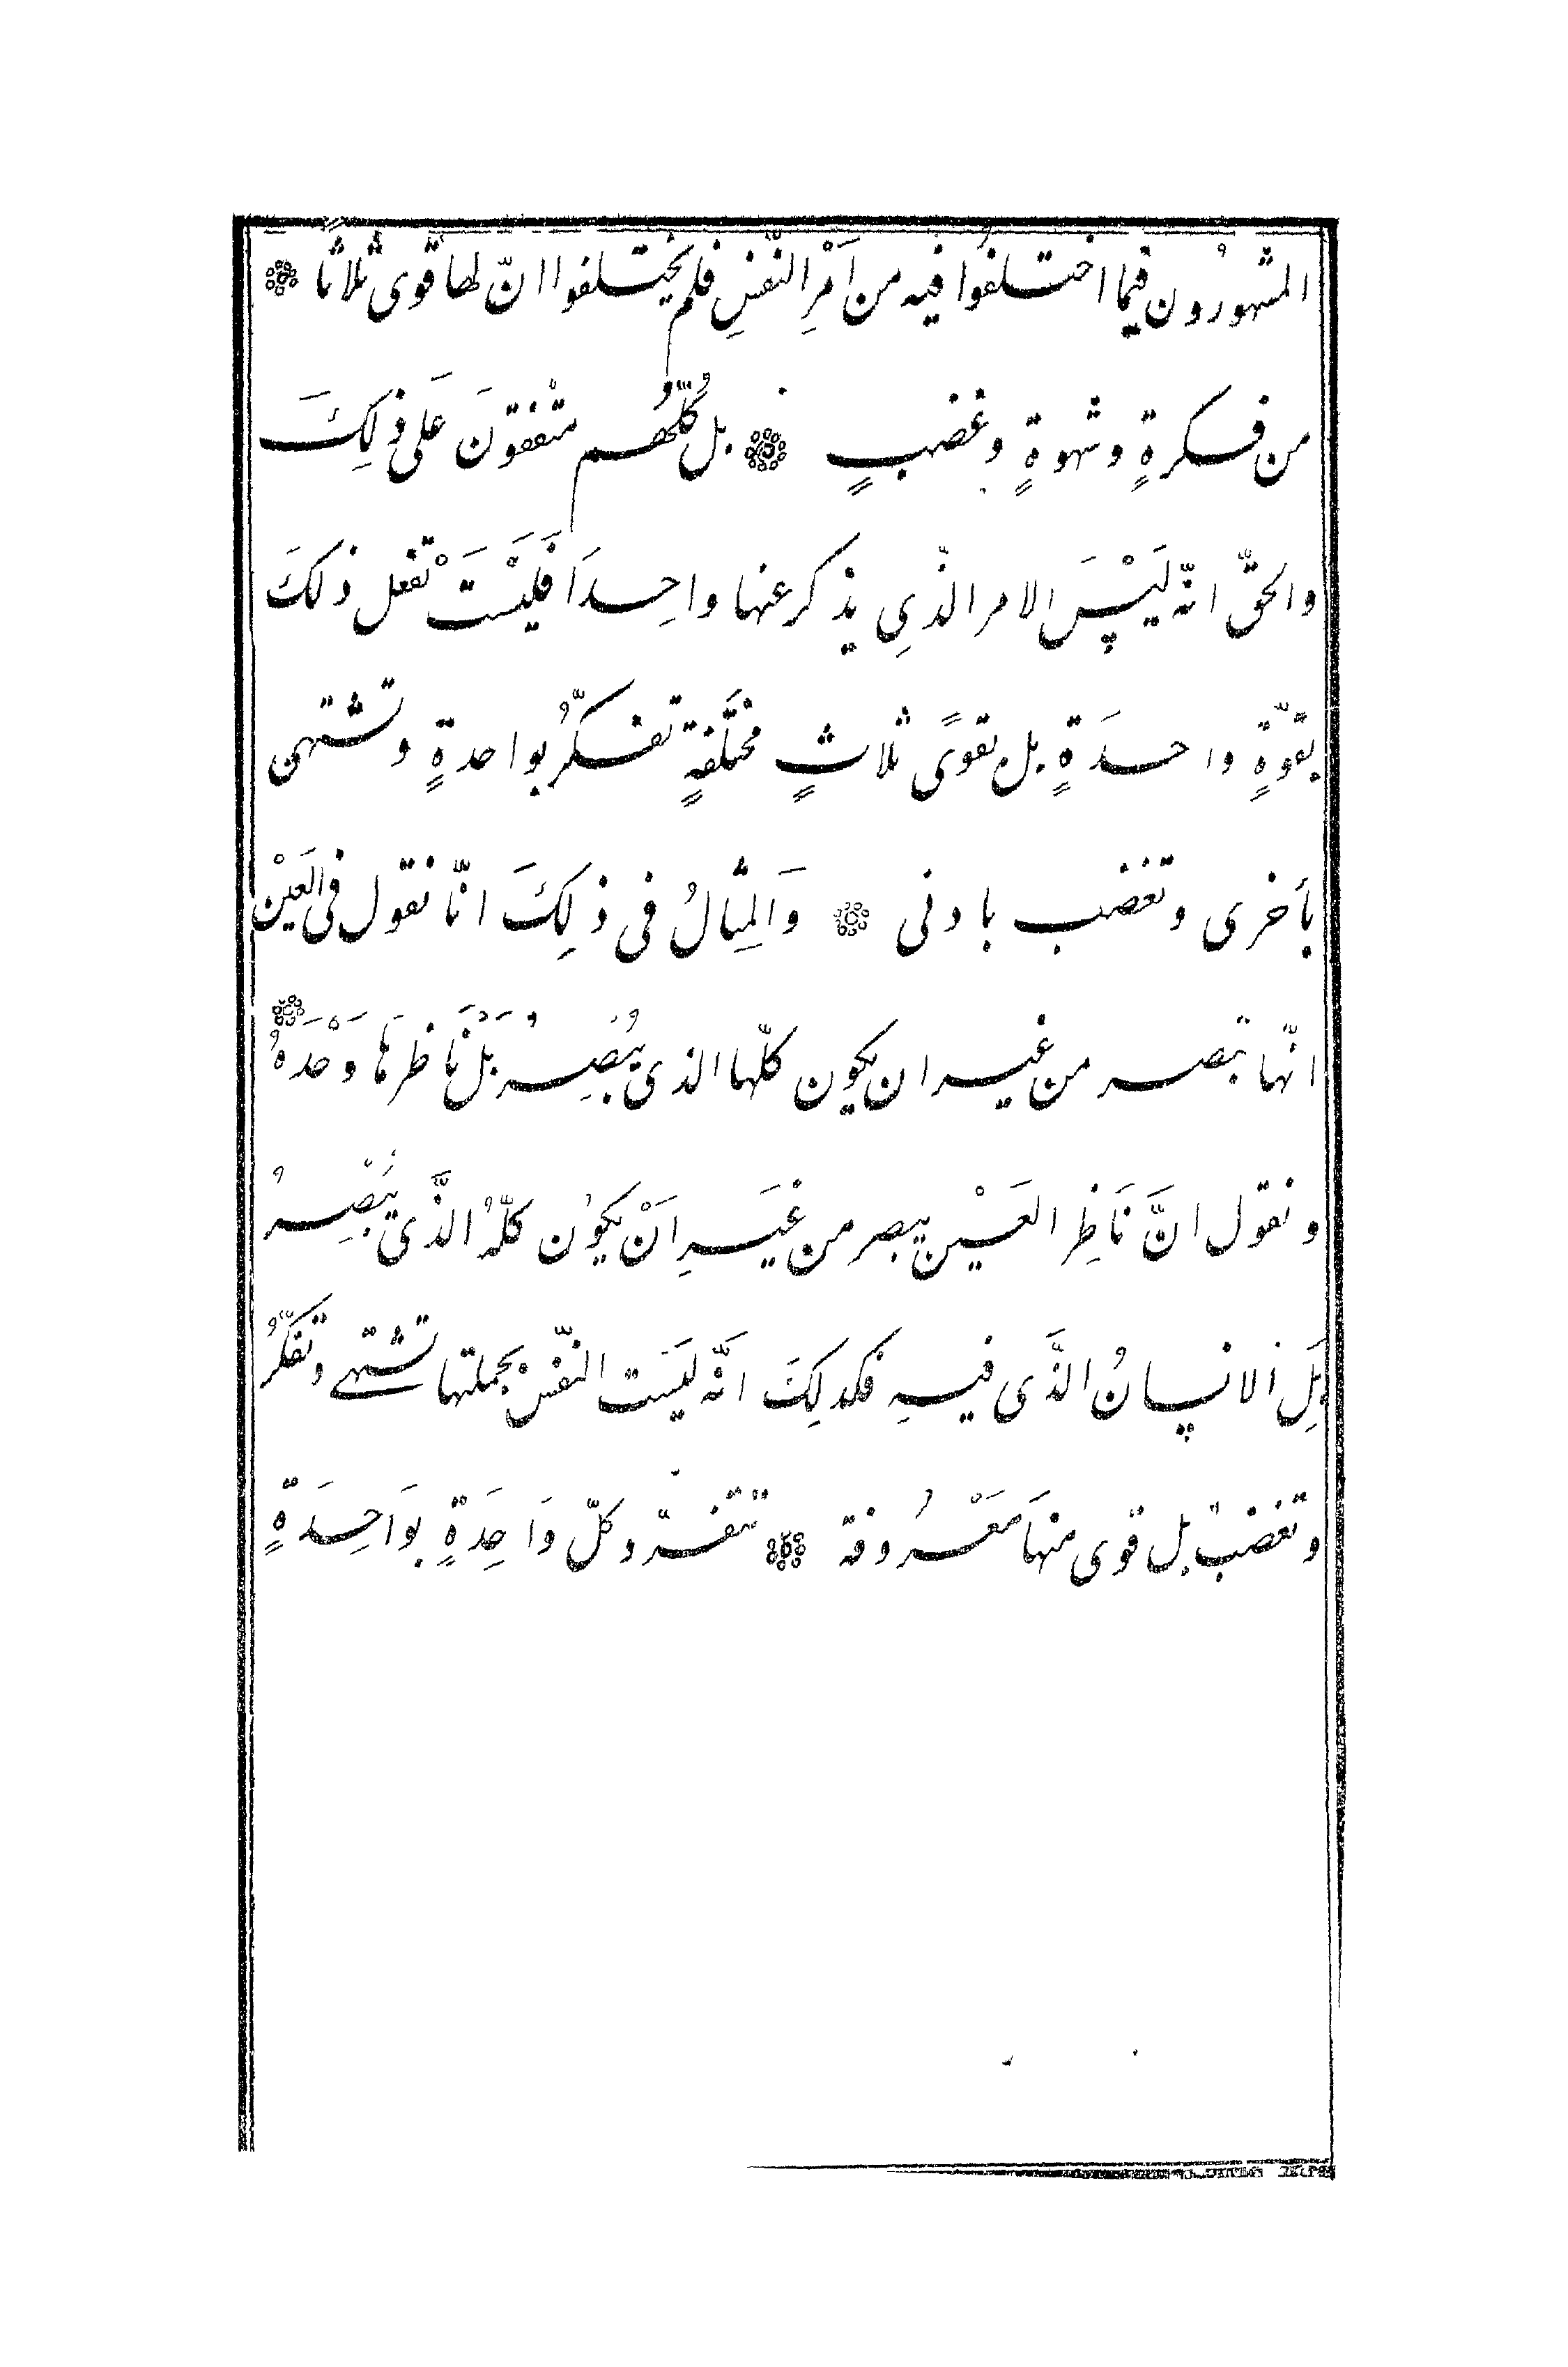 المشهورُون فيما اختلفُوا فيه من اَمْرِ النّفسِ فلم يختلفوا انّ لها قوى ثلاثا ۞
من فكرةٍ وشهوةٍ وغضبٍ ۞ بل كُلّهُم متّفقونَ عَلى ذلِكَ
والحقّ انّه لَيْسَ الامر الذّي يذكر عنها واحِدَا فَلَيْسَتْ تفعل ذلكَ
بقوّةٍ واحدَةٍ بل بقوىً ثلاثٍ مختَلفةٍ تفكّرُ بواحدةٍ وتشتهى
بأخرى وتغضب بادنى ۞ وَالمِثالُ فى ذلِكَ انّا نقول فى العَيْن
انّها تبصر من غير ان يكون كلّها الذى يُبْصِرُ بَلْ نَاظرهَا وَحْدَهُ ۞
ونقول انَّ نَاظِر العَيْن يبصر من غَيرِ اَنْ يكوُن كلّهُ الذَّى يَبْصِرُ
بَلِ الانسانُ الذَّى فيهِ فكذلِكَ انَّه ليَسَت النّفسْ بجملتها تشتهى وتفكّرُ
وتغضبُ بل قوى منهَا مَعْرُوفة ۞ تتفرّد كلّ وَاحِدَةٍ بوَاحِدَةٍ